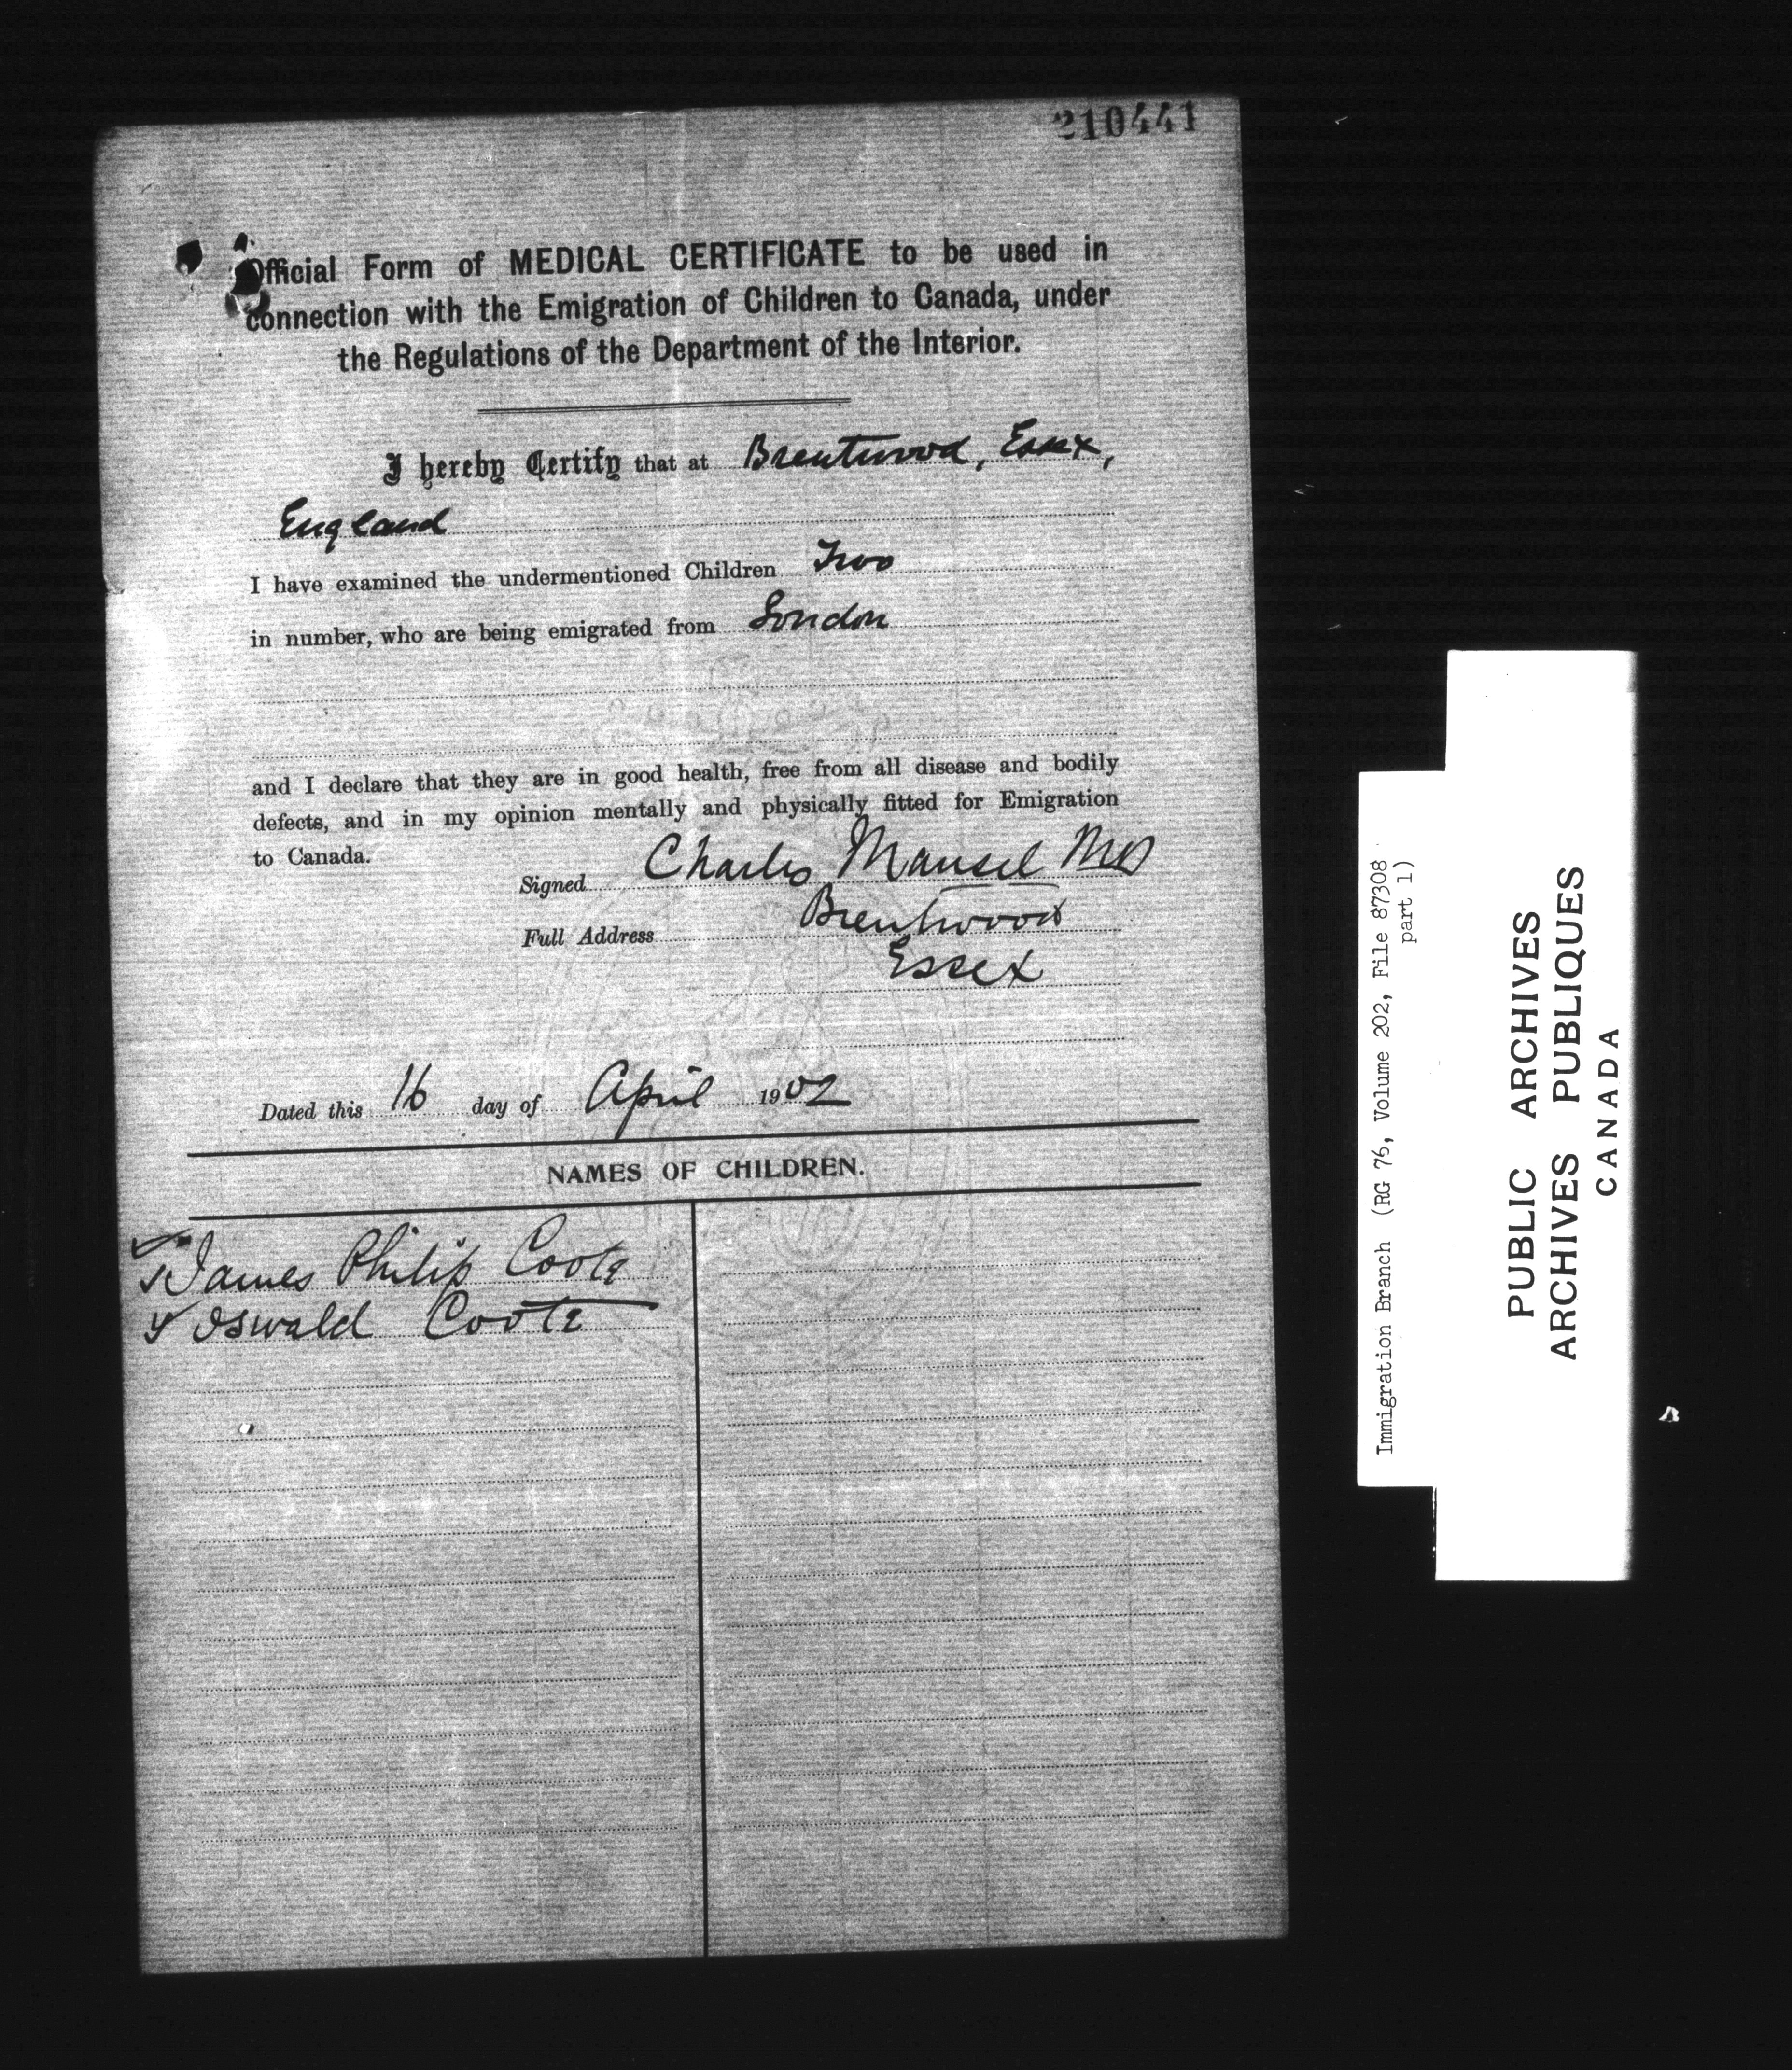 210441
Official Form of MEDICAL CERTIFICATE to be used in
connection with the Emigration of Children to Canada, under
the Regulations of the Department of the Interior.
I hereby Certify that at Brentwood, Essex,
England
I have examined the undermentioned Children Two
in number, who are being emigrated from London
and I declare that they are in good health, free from all disease and bodily
defects, and in my opinion mentally and physically fitted for Emigration
to Canada.
Signed Charles Mansel MD
Full Address Brentwood
Essex
Dated this 16 day of April 1902
NAMES OF CHILDREN.
James Philip Coote
Oswald Coote
Immigration Branch (RG 76, Volume 202, File 87308
part 1)
PUBLIC ARCHIVES
ARCHIVES PUBLIQUES
CANADA